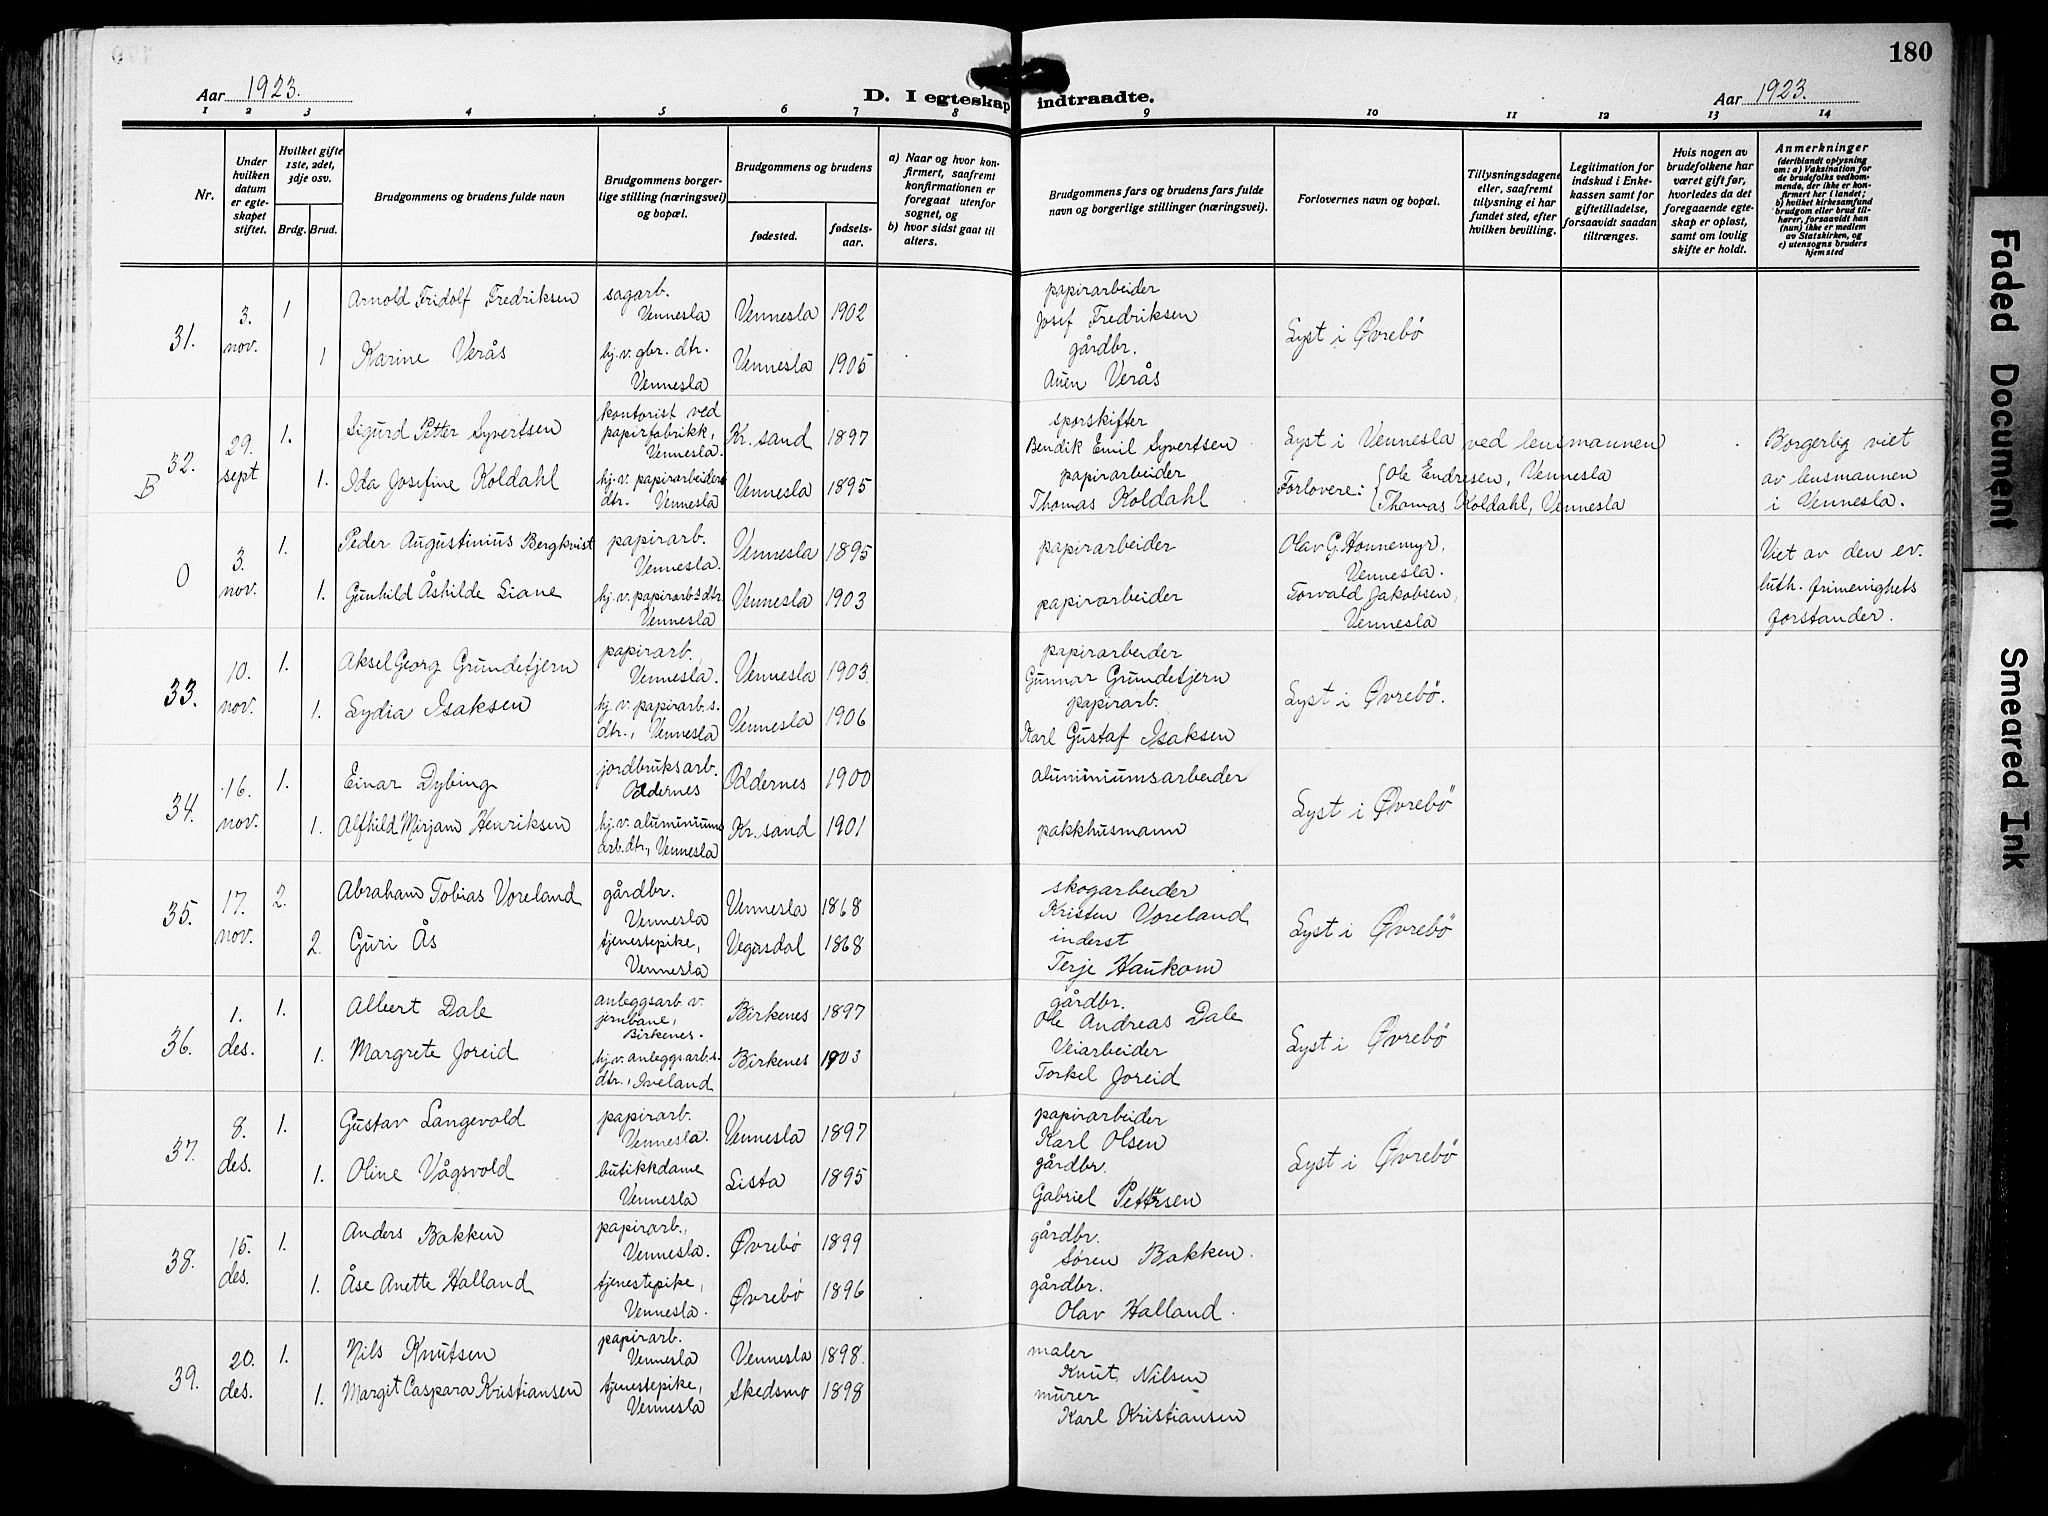 180
Aar 1923.
D. I egteskap indtraadte.
Aar 1923.
1 2 3 4 5 6 7 8 9 10 11 12 13 14
Nr.
Under hvilken datum er egteskapet stiftet.
Hvilket gifte 1ste, 2det, 3dje osv.
Brdg. Brud.
Brudgommens og brudens fulde navn
Brudgommens borgerlige stilling (næringsvei) og bopæl.
Brudgommens og brudens
fødested.
fødselsaar.
a) Naar og hvor konfirmert, saafremt konfirmationen er foregaat utenfor sognet, og
b) hvor sidst gaat til alters.
Brudgommens fars og brudens fars fulde navn og borgerlige stillinger (næringsvei).
Forlovernes navn og bopæl.
Tillysningsdagene eller, saafremt tillysning ei har fundet sted, efter hvilken bevilling.
Legitimation for indskud i Enkekassen samt for giftetilladelse, forsaavidt saadan tiltrænges.
Hvis nogen av brudefolkene har været gift før, hvorledes da det foregaaende egteskap er opløst, samt om lovlig skifte er holdt.
Anmerkninger
(deriblandt oplysning om: a) Vaksination for de brudefolks vedkommende, der ikke er konfirmert her i landet; b) hvilket kirkesamfund brudgom eller brud tilhører, forsaavidt han (hun) ikke er medlem av Statskirken, og c) utensogns bruders hjemsted
31. 3. nov. 1 Arnold Fridolf Fredriksen sagarb. Vennesla Vennesla 1902 papirarbeider Josef Fredriksen Lyst i Øvrebø
1 Karine Verås hj. v. gbr. dtr. Vennesla Vennesla 1905 gårdbr. Auen Verås
B 32. 29. sept 1. Sigurd Petter Syvertsen kontorist ved papirfabrikk, Vennesla. Kr. sand 1897 sporskifter Bendik Emil Syvertsen Lyst i Vennesla ved lensmannen Borgerlig viet av lensmannen i Vennesla.
1. Ida Josefine Koldahl hj. v. papirarbeiders dtr. Vennesla Vennesla 1895 papirarbeider Thomas Koldahl Forlovere: Ole Endresen, Vennesla Thomas Koldahl, Vennesla
0 3. nov. 1. Peder Augustinius Bergkvist papirarb. Vennesla. Vennesla 1895 papirarbeider Olav G. Honnemyr, Vennesla. Viet av den ev. luth. frimenighets forstander.
1. Gunhild Åshilde Liane hj. v. papirarb.s dtr. Vennesla Vennesla 1903 papirarbeider Torvald Jakobsen, Vennesla
33. 10. nov. 1. Aksel Georg Grundetjern papirarb., Vennesla. Vennesla 1903. papirarbeider Gunnar Grundetjern Lyst i Øvrebø.
1. Lydia Isaksen hj. v. papirarb.s. dtr., Vennesla Vennesla 1906 papirarb. Karl Gustaf Isaksen
34. 16. nov. 1. Einar Dybing jordbruksarb. Oddernes Oddernes 1900 aluminiumsarbeider Lyst i Øvrebø
1. Alfhild Mirjam Henriksen hj. v. aluminiums arb. dtr., Vennesla Kr. sand 1901 pakkhusmann
35. 17. nov. 2. Abraham Tobias Voreland gårdbr. Vennesla Vennesla 1868 skogarbeider Kristen Voreland Lyst i Øvrebø
2. Guri Ås tjenestepike, Vennesla Vegusdal 1868 inderst Terje Haukom
36. 1. des. 1. Albert Dale anleggsarb. v. jernbane, Birkenes. Birkenes 1897 gårdbr. Ole Andreas Dale Lyst i Øvrebø
1. Margrete Joreid hj. v. anleggsarb.s. dtr., Iveland Birkenes 1903 Veiarbeider Torkel Joreid
37. 8. des. 1. Gustav Langevold papirarb. Vennesla. Vennesla 1897 papirarbeider Karl Olsen Lyst i Øvrebø
1. Oline Vågsvold butikkdame Vennesla Lista 1895 gårdbr. Gabriel Pettersen
38. 15. des. 1. Anders Bakken papirarb., Vennesla. Øvrebø 1899 gårdbr. Søren Bakken.
1. Åse Anette Halland tjenestepike, Vennesla. Øvrebø 1896 gårdbr. Olav Halland.
39. 20. des. 1. Nils Knutsen papirarb. Vennesla Vennesla 1898. maler Knut Nilsen
1. Margit Caspara Kristiansen tjenestepike, Vennesla Skedsmo 1898 murer Karl Kristiansen
Faded Document
Smeared Ink